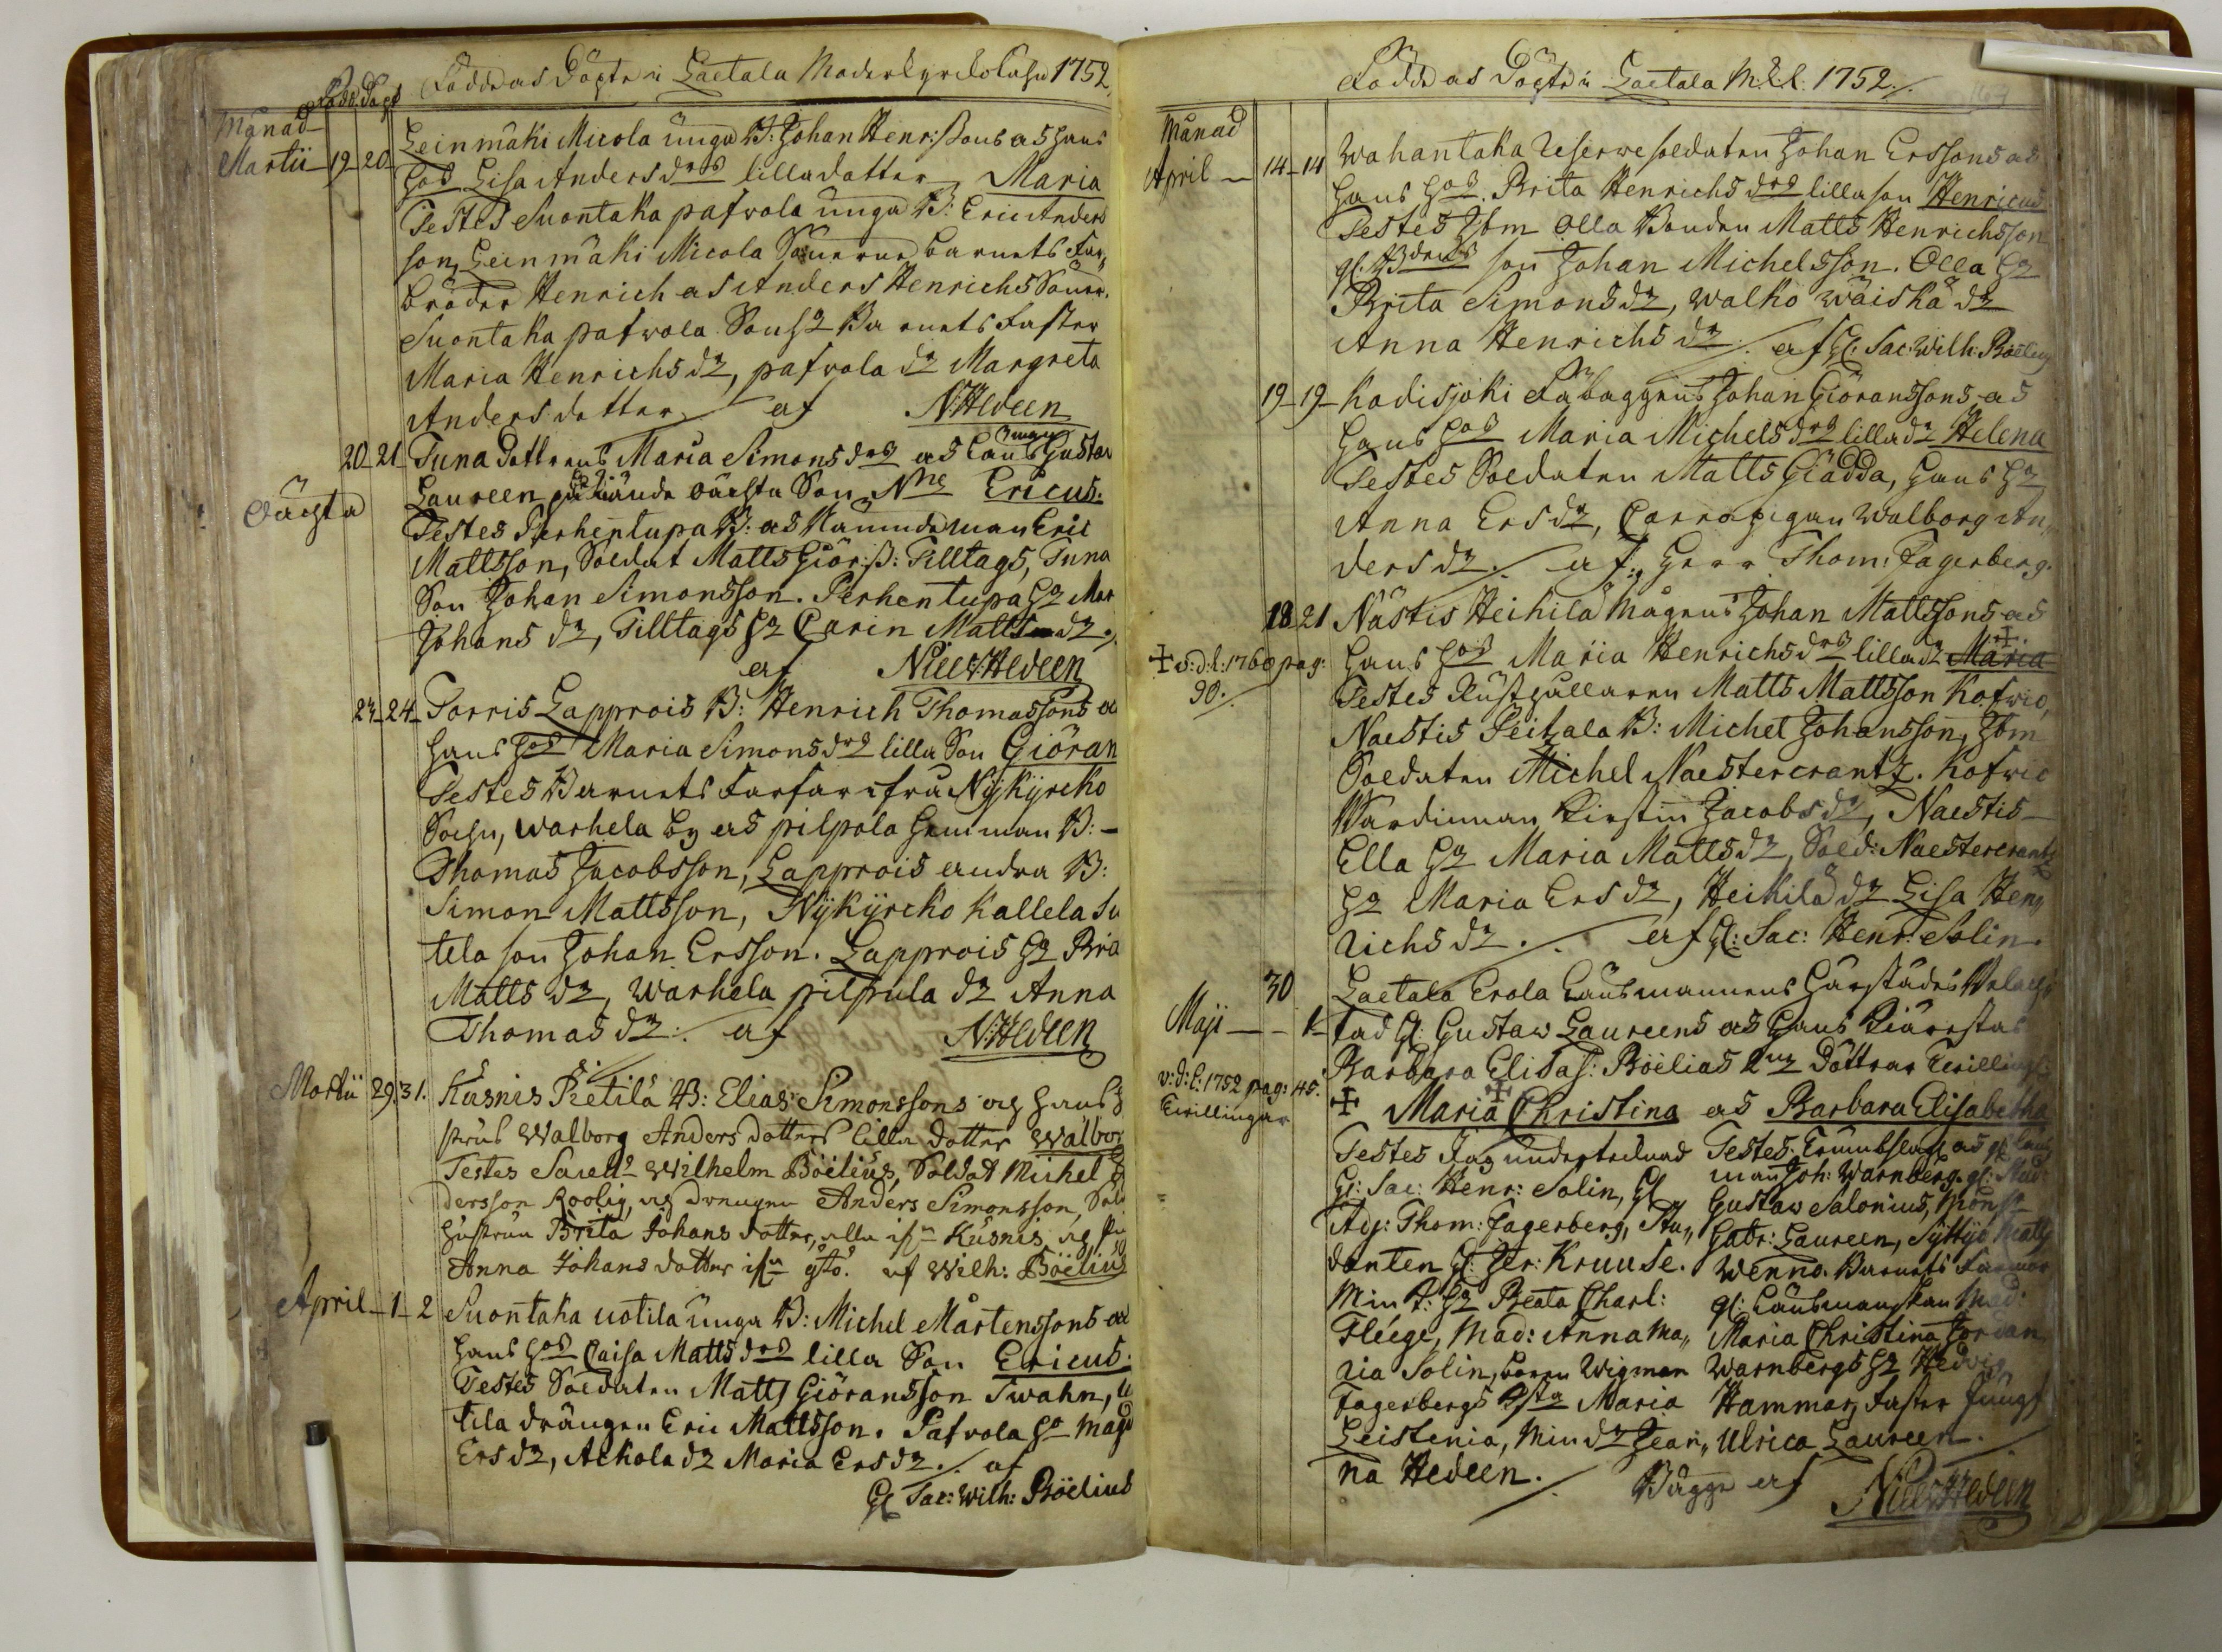 Födde och Döpte i Laetala Moderkyrkosochn 1752
Månad Född. Döpt
Leinmäki Micola unga B: Johan Henr:ßons och hans
Martii 19 20 hos Lisa Anders drs lilla dotter Maria
Testes Suontaka pafvola unga B: Eric Anders
son, Leinmäki Micola Sönerne barnets Far
bröder Henrich och Anders Henrichs Söner.
Suontaka pafvola Barnets Faster
Maria Henrichs dr, pafvola dr Margreta
Anders dotter af N:Hedeen
20 21 Tuna dottrens Maria Simons drs och Gustav
oächta Laureen oächta Son Nne Ericus.
Testes Perhentupa B: och Nämndeman Eric
Mattsson, Soldat Matts Giör:ß: Tilltags, Tuna
Son Johan Simonsson. Perhentupa hu Mar
Johans dr, Tilltags hu Carin Matts dr ./.
af Niels:Hedeen
23 24 Torris Lapprois B: Henrich Thomassons och
hans hos Maria Simons drs lilla Son Giöran
Testes Barnets Farfar ifrå Nykyrcko
Sochn, Warhela by och pilpola hemman B:
Thomas Jacobsson, Lapprois andra B:
Simon Mattsson, Nykyrcko Kallela Su
tela son Johan Ersson. Lapprois hu Bri
Matts dr, Warhela pilpula dr Anna
Thomas dr ./. af N:Hedeen
Martii 29. 31. Kusnis Pietilä B: Elias Simonssons och hans h
strus Walborg Anders dotters lilla dotter Walbor
Testes Wilhelm Böelius, Soldat Michel
dersson Roolig, och drengen Anders Simonsson, Sold
hustrun Brita Johans dotter, alla ifrn Kusnis, och
Anna Johans dotter af Wilh: Böelius
April 1 2 Suontaka uotila unga B: Michel Mårtenssons och
hans hos Caisa Matts drs lilla Son Ericus.
Testes Soldaten Matts Giöransson Swahn,
tila drängen Eric Mattsson. Pafvola hu Mag
Ers dr, Ackola dr Maria Ers dr ./. af
Hl Sac: Wilh: Böelius
Födde och Döpte i Laetala M.k.l. 1752 ./.
Månad
April 14 14 Wahantaka Reserve soldaten Johan Erssons och
hans hos Brita Henrichs drs lilla son Henricus
Testes Olla Bonden Matts Henrichsson
son Johan Michelsson. Olla hu
Brita Simons dr, Walko Wäiskä dr
Anna Henrichs dr ./. af Hl: Sac: Wilh: Böelius
19 19 Kodisjoki Johan Giöranssons och
hans hos Maria Michels drs lilla dr Helena
Testes Soldaten Matts Giädda, hans hu
Anna Ers dr, Walborg An
ders dr ./. af: Herr Thom: Fagerberg.
18 21 Nästis Heikilä Mågens Johan Mattssons och
✝ v:d:l: 1760 pag: 90. hans hos Maria Henrichs drs lilla dr Maria ✝
Testes Rusthållaren Matts Mattsson Kofwio,
Naestis Peitala B: Michel Johansson,
Soldaten Michel Naestercrantz. Kofwio
Wärdinnan Kirstin Jacobs dr, Naestis
Ella hu Maria Matts dr, Sold: Naestercrantz
hu Maria Ers dr, Heikilä dr Lisa Hen
richs dr ./. af Hl: Sac: Henr: Solin.
30 Laetala Erola Länsmannens härstädes
Maji 1 Hl: Gustaw Laureens och hans Kiäresta
v:d:l: 1752 pag: 45. Barbara Elisa: Böelias döttrar
✝ Maria Christina och Barbara Elisabetha
Testes Jag undertecknad
Hl: Sac: Henr: Solin, Hl
Adj: Thom: Fagerberg, Stu
denten Hl: Jer: Kruuse.
Min k: hu Beata Charl:
Fléege, Mad: Anna Ma
ria Solin, Wigman
Fagerbergs Maria
Leistenia, Min dr Jean
na Hedeen. ./.
Testes:
man Joh: Warnberg. Hl: Stud:
Gustaw Salonius,
Gabr: Laureen,
Wenno. Barnets Farmor
Länsmanskan Mad:
Maria Christina Jordan,
Warnbergs hu Hedvig
Hammar, Faster Jungf
Ulrica Laureen.
Bägge af Niels:Hedeen